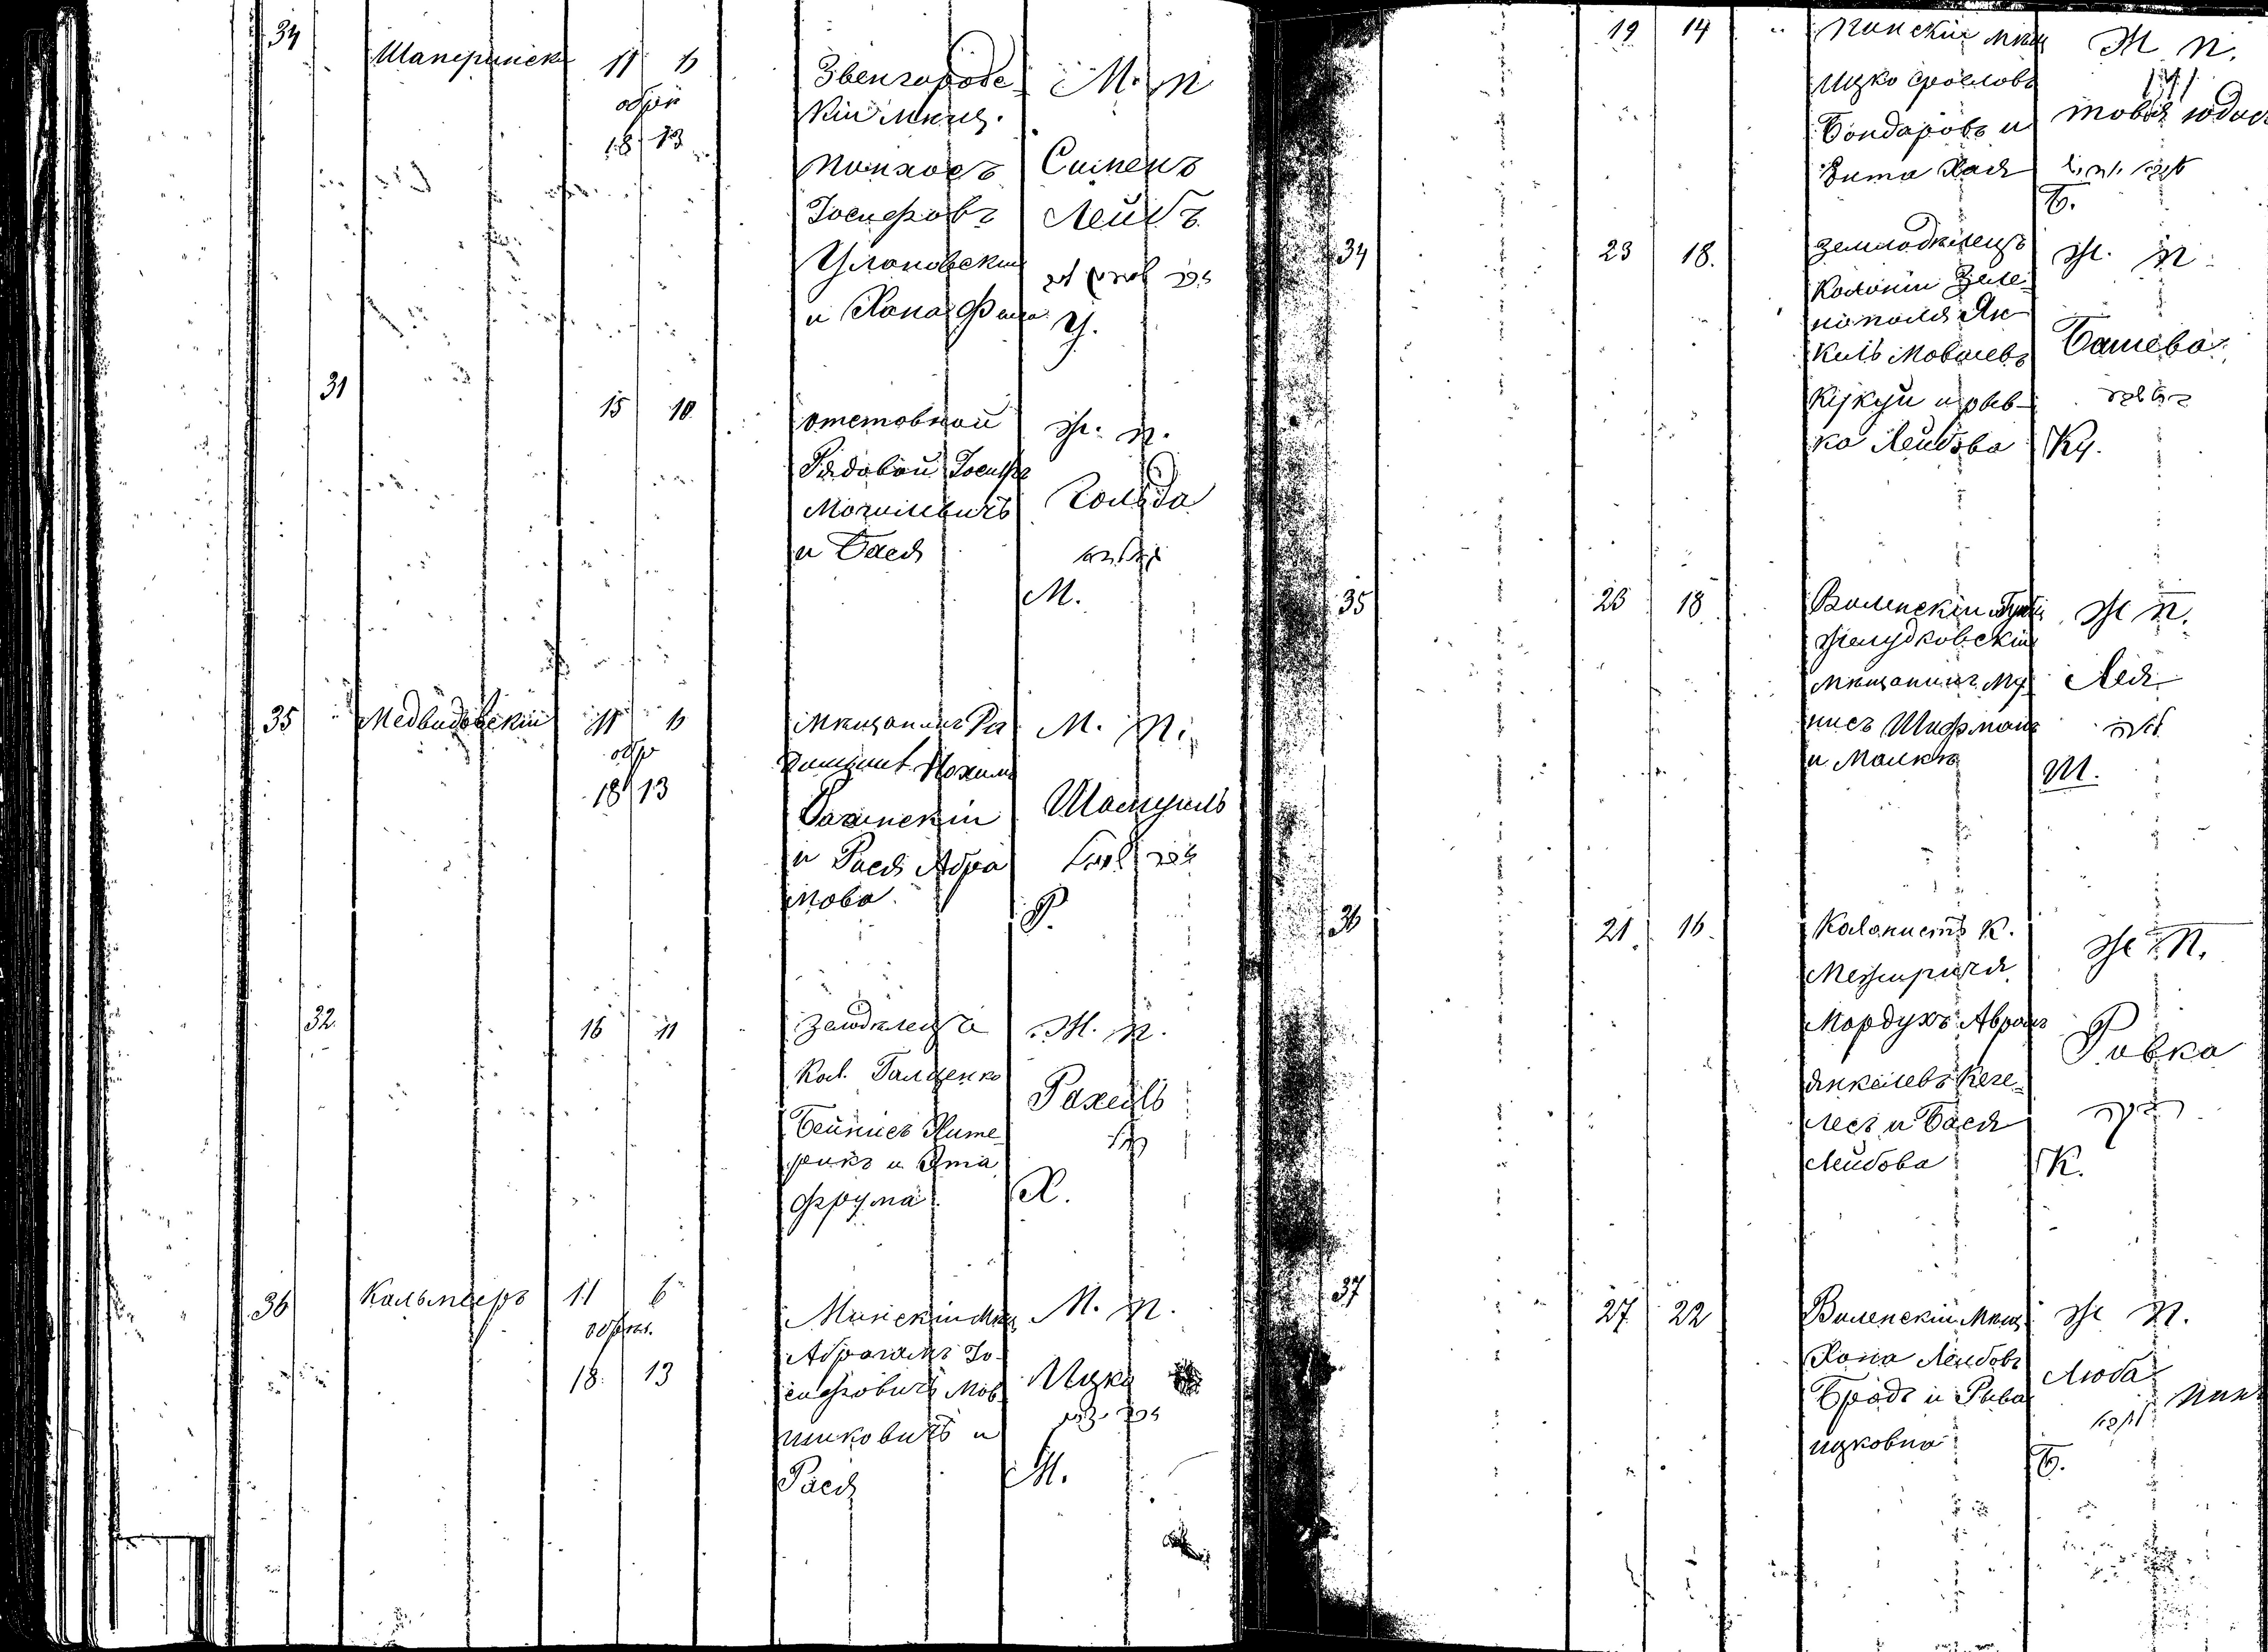 34
Шаперинск
11 6
обрѣз
18 13
Звенгородс-
кій мѣщ.
Пинхосъ
Іосифовъ
Улановскій
и Хана Фейга
М. п
Сименъ
Лейбъ
У.
31
15 10
отставной
Рядовой Іосифъ
Могилевичъ
и Бася
Ж. п.
Гольда
גאלדא
М.
35
Медвидовскій
11 6
обр
18 13
мѣщанинъ Ра
Нохимъ
и Рася Абра
мова
М. п.
Шамуилъ
Р.
32
16 11
земдѣлецъ
Кол. Галценко
Бейнисъ Хите-
рикъ и Эта
Фрума
Ж. п.
Рахель
רחל
Х.
36
Кальмееръ
11 6
обрѣз.
18 13
Минскій мѣщ
Абрагамъ Іо-
сифовичъ Мов-
шиковичъ и
Рася
М. п.
Ицко
М.
19 14
Пинскій мѣщ
Ицко Сроелов
Бондаровъ и
Хая
Ж п.
Б.
34
23 18.
земледѣлецъ
Колоніи Зеле-
нополя Ян-
кель Мовшевъ
Кукуй и Рыв-
ка Лейбова
Ж. п.
Башева
Ку.
35
23 18
Виленскій губ
Желудковскій
мѣщанинъ Му
нисъ Шифманъ
и Малка
Ж п.
Лея
לאה
Ш.
36
21 16
Колонистъ К.
Межирича
Мордухъ Авромъ
Янкелевъ Кеге-
лесъ и Бася
Лейбова
Ж. п.
Ривка
רבקה
К.
37
27 22
Виленскій мѣщ
Хона Лейбовъ
Бродъ и Рыва
ицковна
Ж п.
Люба
Б.